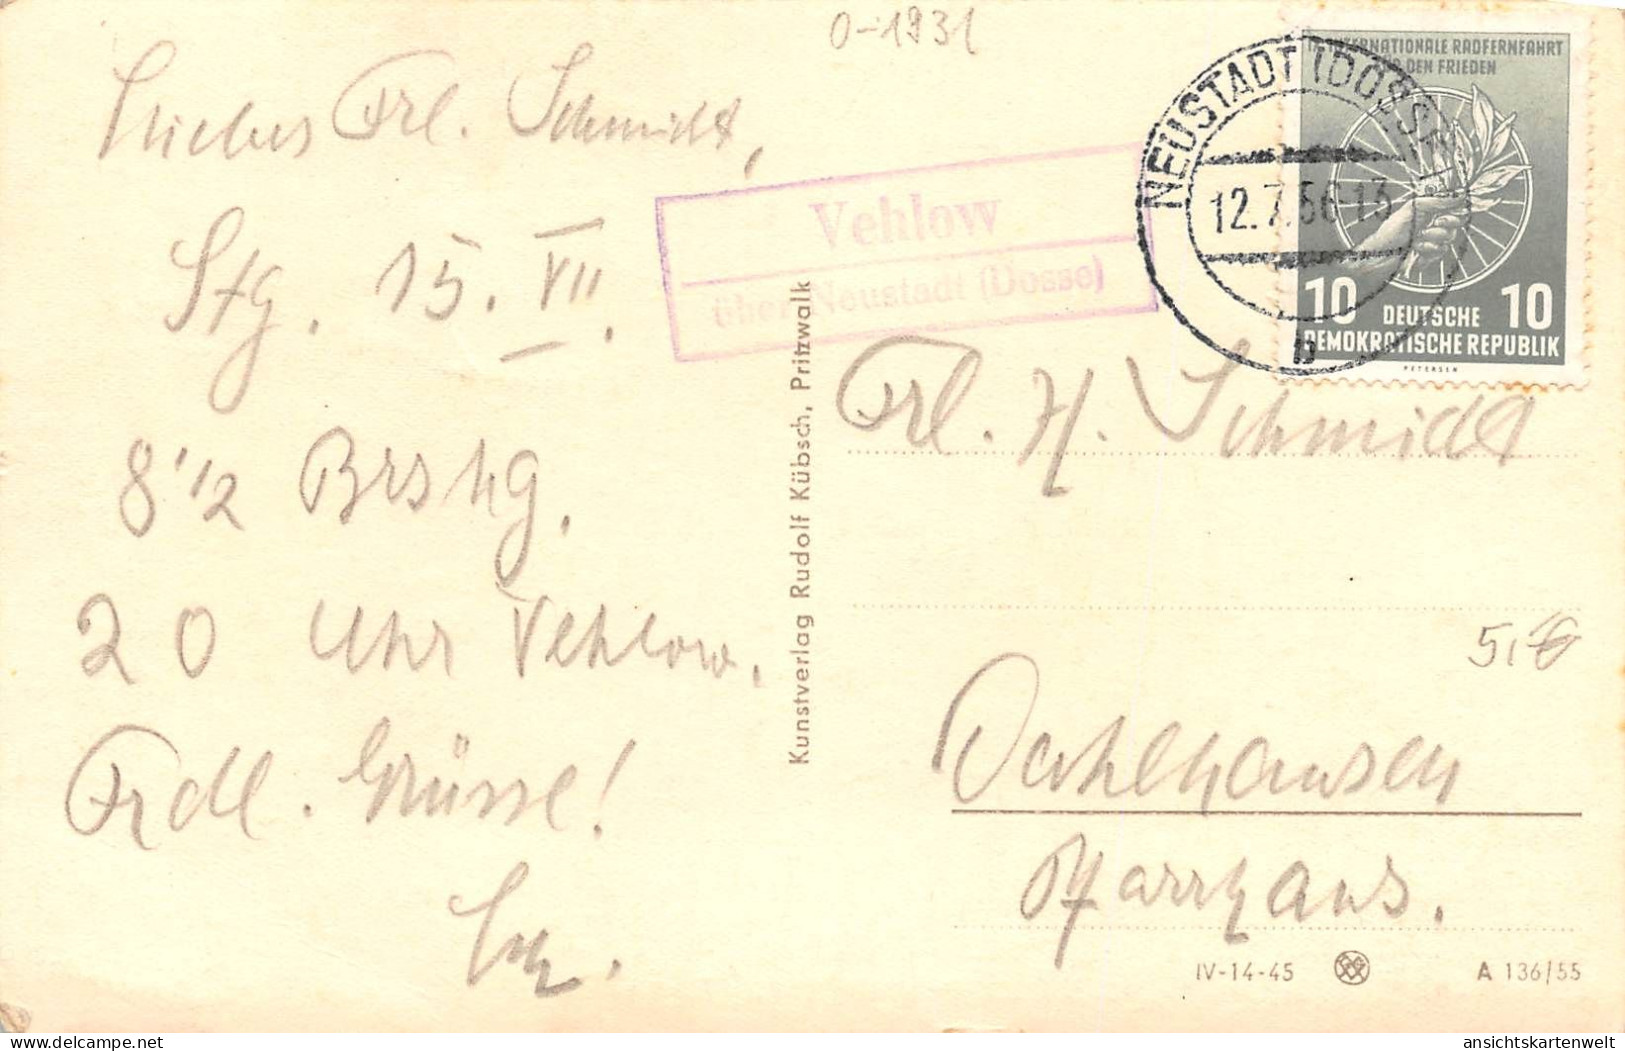 0-1931
Liebes Frl. Schmidt,
Stg. 15. VII.
8 1/2 Brshg.
20 Uhr Vehlow.
Frdl. Grüsse!
Vehlow
über Neustadt (Dosse)
NEUSTADT (DOSSE)
12.7.56-13
b
IX. INTERNATIONALE RADFERNFAHRT
FÜR DEN FRIEDEN
10 DEUTSCHE 10
DEMOKRATISCHE REPUBLIK
PETERSEN
Kunstverlag Rudolf Kübsch, Pritzwalk
Frl. H. Schmidt
Dahlhausen
Pfarrhaus.
IV-14-45
A 136/55
delcampe.net
ansichtskartenwelt